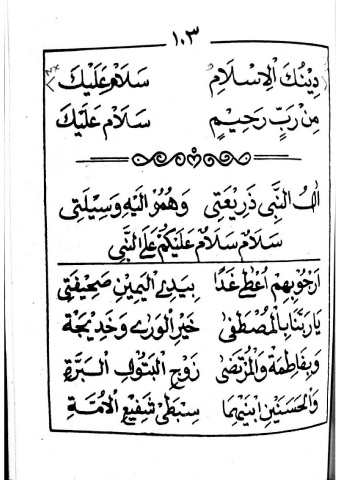 ١٠٣
دِيْنُكَ الْاِسْلَامِ سَلَامْ عَلَيْكَ
مِنْ رَبٍّ رَحِيْمٍ سَلَامْ عَلَيْكَ
اٰلُ النَّبِى ذَرِيْعَتِى وَهُمُوْ اِلَيْهِ وَسِيْلَتِى
سَلَامٌ سَلَامٌ عَلَيْكُمْ عَلَى النَّبِى
اَرْجُوْ بِهِمْ اُعْطٰى غَدًا بِيَدِىْ الْيَمِيْنِ صَحِيْفَتِى
يَا رَبَّنَا بِالْمُصْطَفٰى خَيْرِ الْوَرٰى وَخَدِيْجَة
وَبِفَاطِمَةْ وَالْمُرْتَضٰى زَوْجِ الْبَتُوْلِ الْبَرَّةِ
وَالْحَسَنَيْنِ ابْنَيْهِمَا سِبْطَىْ شَفِيْعِ الْاُمَّةِ